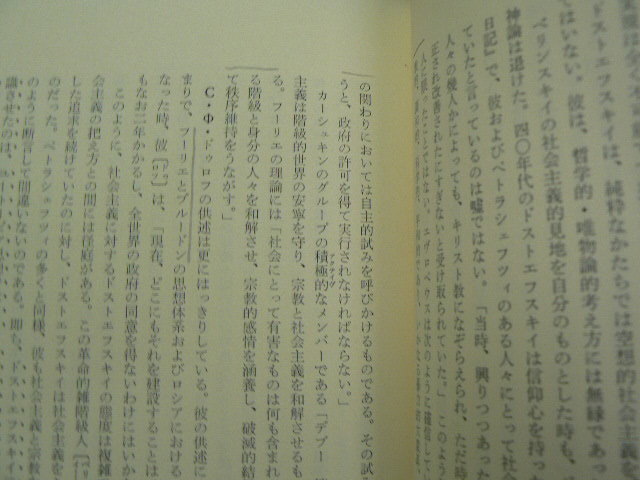 ドストエフスキイは、純粋なかたちでは空想的社会
てはいない。彼は、哲学的・唯物論的考え方には無縁であっ
ベリンスキイの社会主義的見地を自分のものとした時も、彼
神論は退けた。四〇年代のドストエフスキイは信仰心を持っ
日記』で、彼およびペトラシェフツィのある人々にとって社会
ていたと言っているのは嘘ではない。「当時、興りつつあっ
人々の幾人かによっても、キリスト教になぞらえられ、ただ時
正され改善されたにすぎないと受け取られていた。」このよう
人に限ったことではない。エヴロペウスは次のように確信してい
の関わりにおいては自主的試みを呼びかけるものである。その試
うと、政府の許可を得て実行されなければならない。」
カーシュキンのグループの積極的なメンバーである「デブー
アクティヴ
主義は階級的世界の安寧を守り、宗教と社会主義を和解させるも
る。フーリエの理論には「社会にとって有害なものは何も含まれ
る階級と身分の人々を和解させ、宗教的感情を涵養し、破滅的結
て秩序維持をうながす。」
С・Ф・ドゥロフの供述は更にはっきりしている。彼の供述に
まりで、フーリエとプルードンの思想体系およびロシアにおける
なった時、彼は、「現在、どこにもそれを建設することは
もなお二年かかるし、全世界の政府の同意を得ないわけにはいか
このように、社会主義に対するドストエフスキイの態度は複雑
会主義の把え方との間には径庭がある。この革命的雑階級人
した追求を続けていたのに対し、ドストエフスキイは社会主義
のだった。ペトラシェフツィの多くと同様、彼も社会主義と宗教
のように断言して間違いないのである。即ち、ドストエフスキイ
識させたのは、